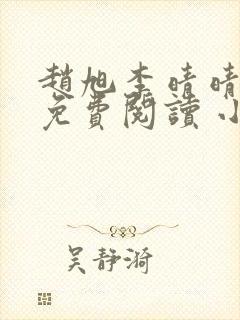 趙旭李晴晴
免費閱讀小
吴静漪